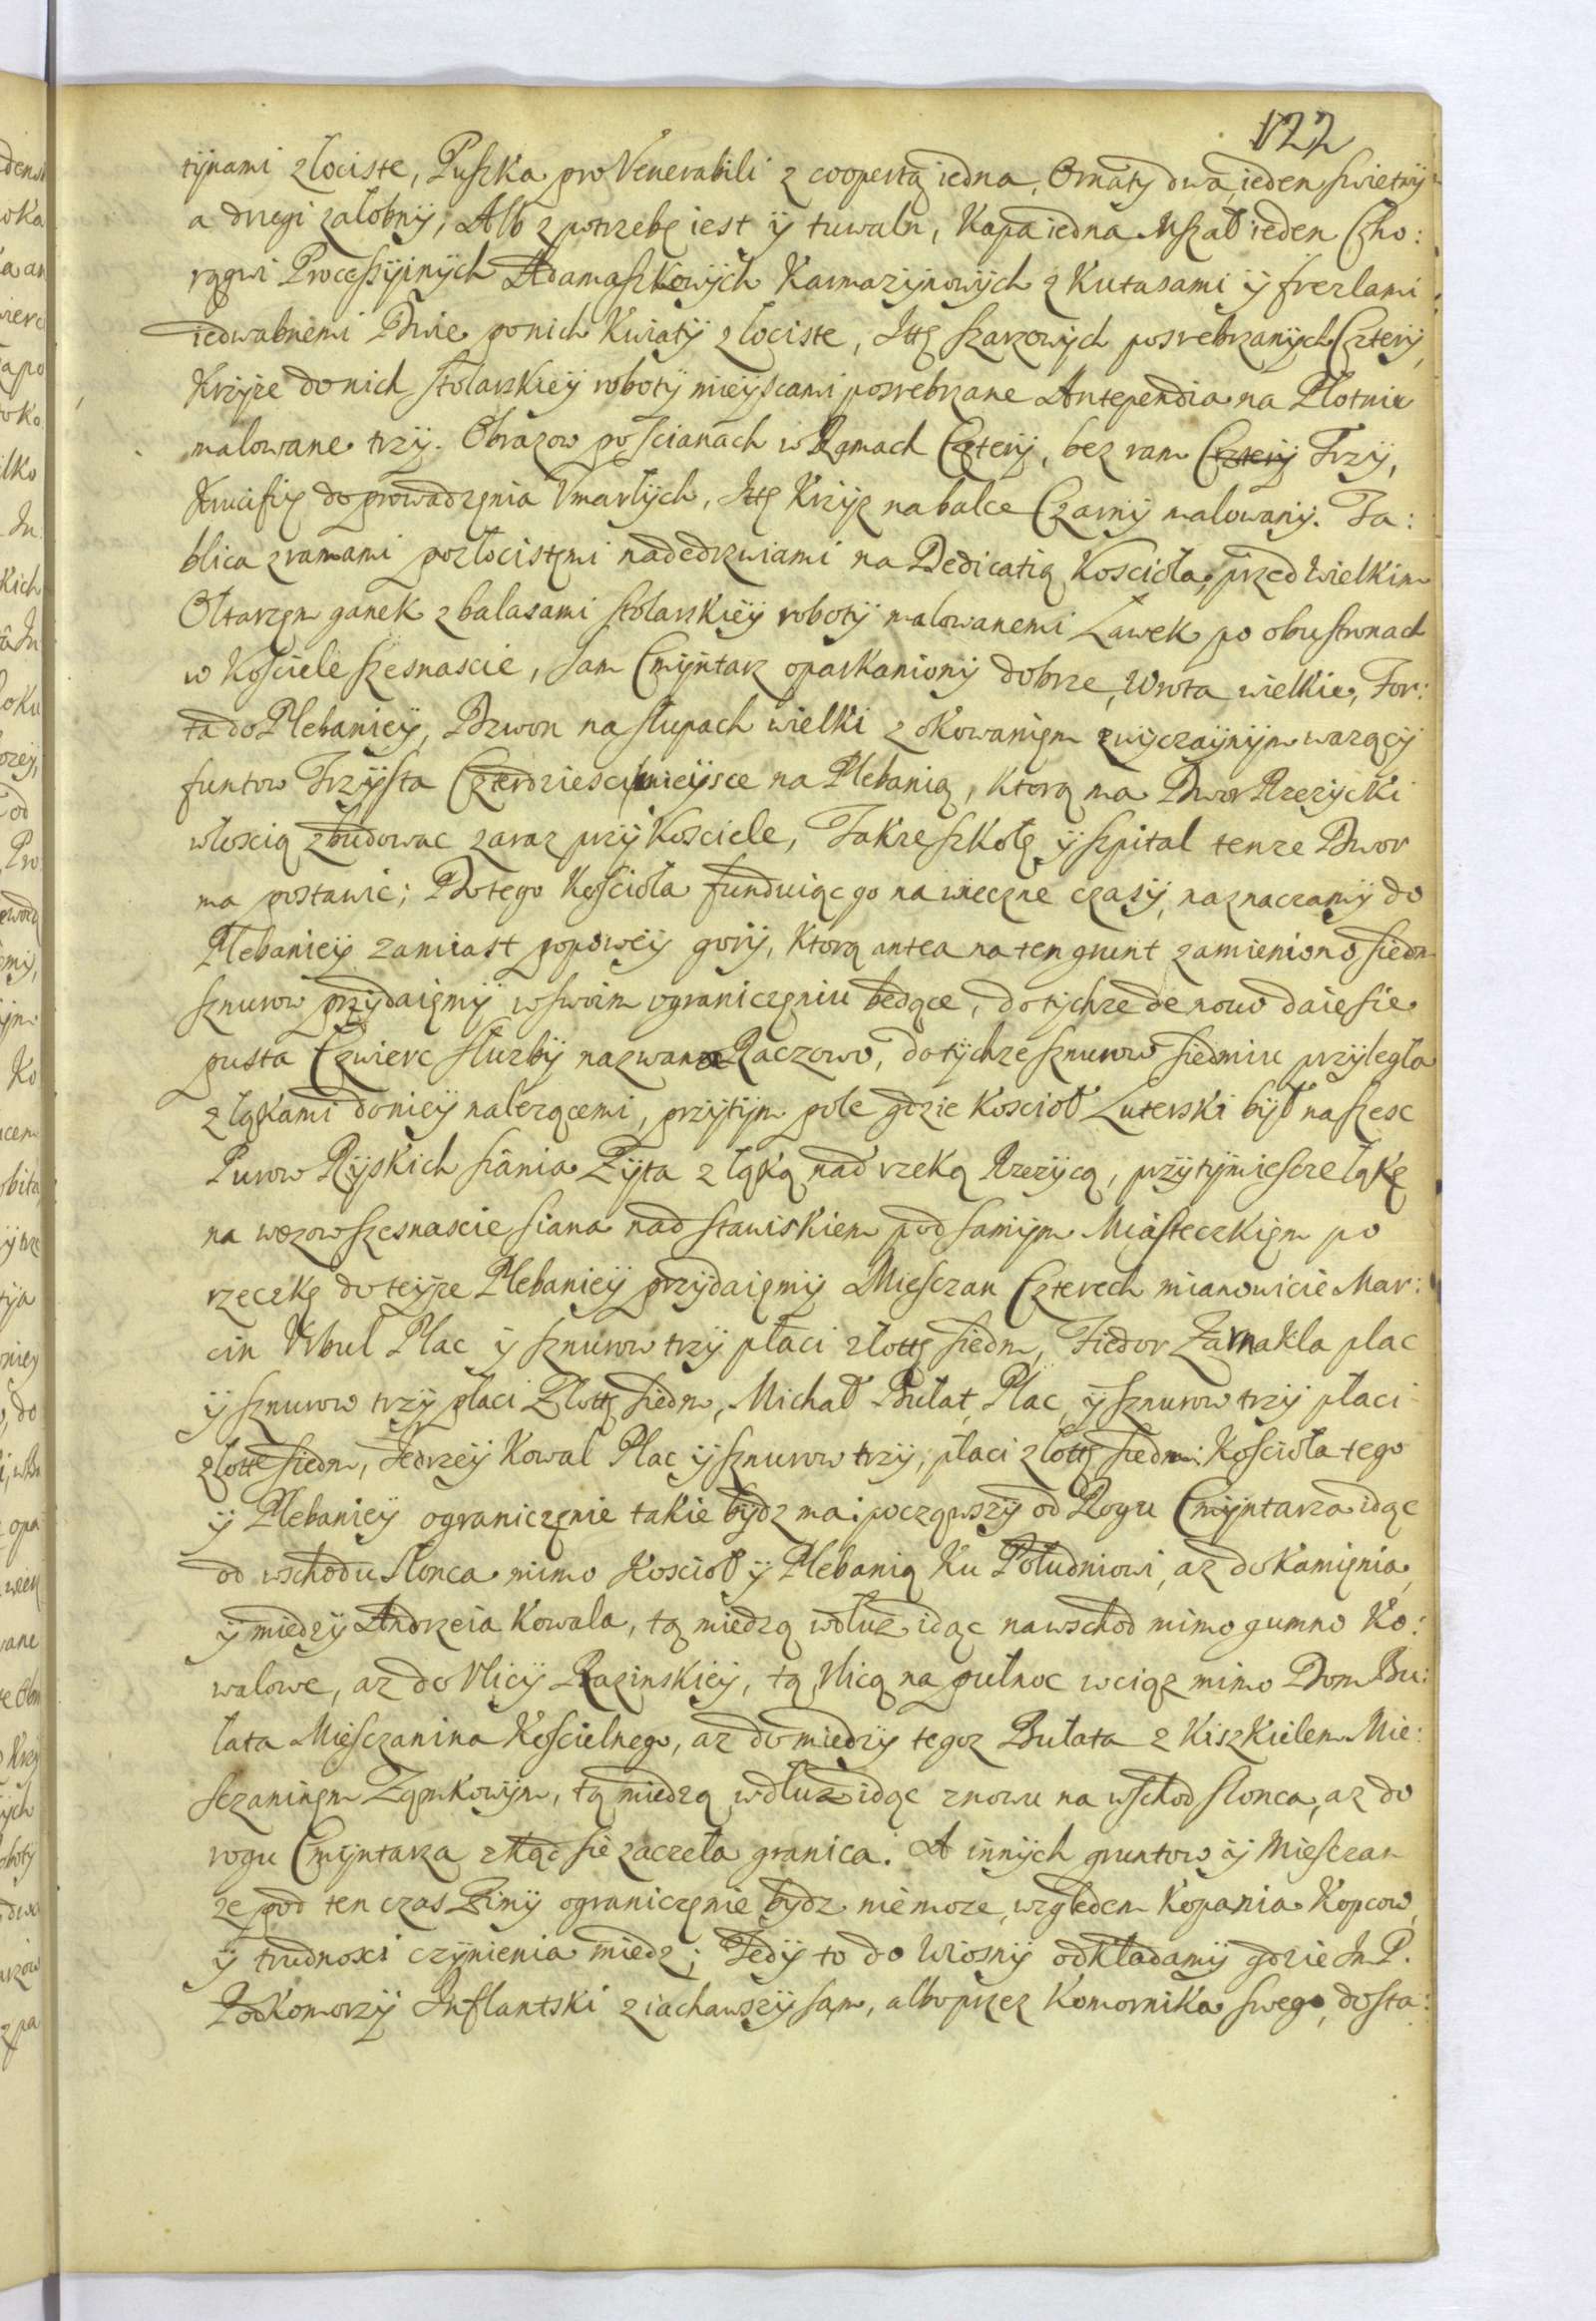 122
tÿnami złociste, Puszka pro Venerabili z coopertą iedna, Ornatÿ dwa, ieden swietnÿ
a drugi załobnÿ, Alb z potrzebę iest ÿ tuwaln, Kapa iedna Mszał ieden Cho:
rągwi Processÿinÿch Adamaszkowÿch Karmazÿnowÿch z Kutasami ÿ frezlami
iedwabnemi Dwie po nich Kwiatÿ złociste, Itt szarzowÿch posrebrzanÿch Czterÿ,
Krzÿze do nich stolarskieÿ robotÿ mieÿscami posrebrzane Antependia na Płotnie
malowane trzÿ. Obrazow po scianach w Ramach Czterÿ, bez ram Czterÿ Trzÿ,
Krucifix do prowadzęnia Vmarłÿch, Itt Krzÿz na balce Czarnÿ malowanÿ. Ta:
blica z ramami pozłocistęmi nadedrzwiami na Dedicatią Koscioła, przed Wielkim
Ołtarzęm ganek z balasami stolarskieÿ robotÿ malowanemi Ławek po obu stronach
w Kosciele szesnascie, sam Cmÿntarz oparkanionÿ dobrze, Wrota wielkie, For:
ta do Plebanieÿ, Dzwon na słupach wielki z okowanięm zwÿczaÿnÿm wazącÿ
funtow Trzÿsta Czterdziesci, mieÿsce na Plebanią, ktorą ma Dwor Rzezÿcki
włoscią zbudowac zaraz przÿ Kosciele, Takze szkołę ÿ szpital tenze Dwor
ma postawic; Do tego Koscioła funduiąc go na wieczne czasÿ, naznaczamÿ do
Plebanieÿ zamiast popoweÿ gorÿ, Ktorą antea na ten grunt zamieniono, siedm
sznurow przÿdaięmÿ w swoim ograniczęniu będące, do tÿchze de nouo daie sie
pusta Czwierc słuzbÿ nazwana Raczowo, do tÿchze sznurow siedmiu przÿległa
z łąkami do nieÿ nalezącemi, przÿtÿm pole gdzie Koscioł Luterski bÿł na szesc
Purow Rÿskich siania Zÿta z łąką nad rzeką Rzezÿcą, przÿtÿm ieszcze łąkę
na wozow szesnascie siana nad stawiskiem pod samÿm Miasteczkięm po
rzeczkę do teÿze Plebanieÿ przÿdaięmÿ Miesczan Czterech mianowicie Mar:
cin Vrbul Plac ÿ sznurow trzÿ płaci złott siedm, Fiedor Zarnakla plac
ÿ sznurow trzÿ płaci Złott siedm, Michał Bułat, Plac, ÿ sznurow trzÿ płaci
złott siedm, Jedrzeÿ Kowal Plac ÿ sznurow trzÿ, płaci złott siedm: Koscioła tego
ÿ Plebanieÿ ograniczęnie takie bÿdz ma: począwszÿ od Rogu Cmÿntarza idąc
od wschodu słonca mimo Koscioł ÿ Plebanią Ku Południowi, az do Kamięnia,
ÿ miedzÿ Andrzeia Kowala, tą miedzą wdłuz idąc na wschod mimo gumno Ko:
walowe, az do Vlicÿ Razinskieÿ, tą Vlicą na pułnoc wciąz mimo Dom Bu:
łata Miesczanina Koscielnego, az do miedzÿ tegoz Bułata z Kiszkielem Mie:
sczaninęm Ząmkowÿm, tą miedzą wdłuz idąc znowu na wschod słonca, az do
rogu Cmÿntarza zkąd sie zaczeła granica. A innÿch gruntow ÿ Miesczan
ze pod ten czas Zimÿ ograniczęnie bÿdz nie moze, wzglęдem Kopania Kopcow,
ÿ trudnosci czÿnienia miedz; Tedÿ to do Wiosnÿ odkładamÿ gdzie Im P.
Podkomorzÿ Inflantski ziachawszÿ sąm, albo przez Komornika swego, dosta: